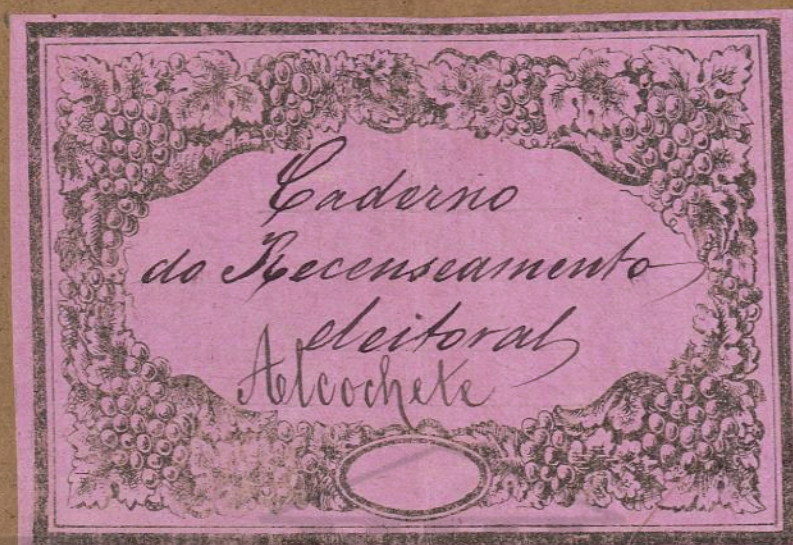 Caderno
do Recenseamento
eleitoral
Alcochete